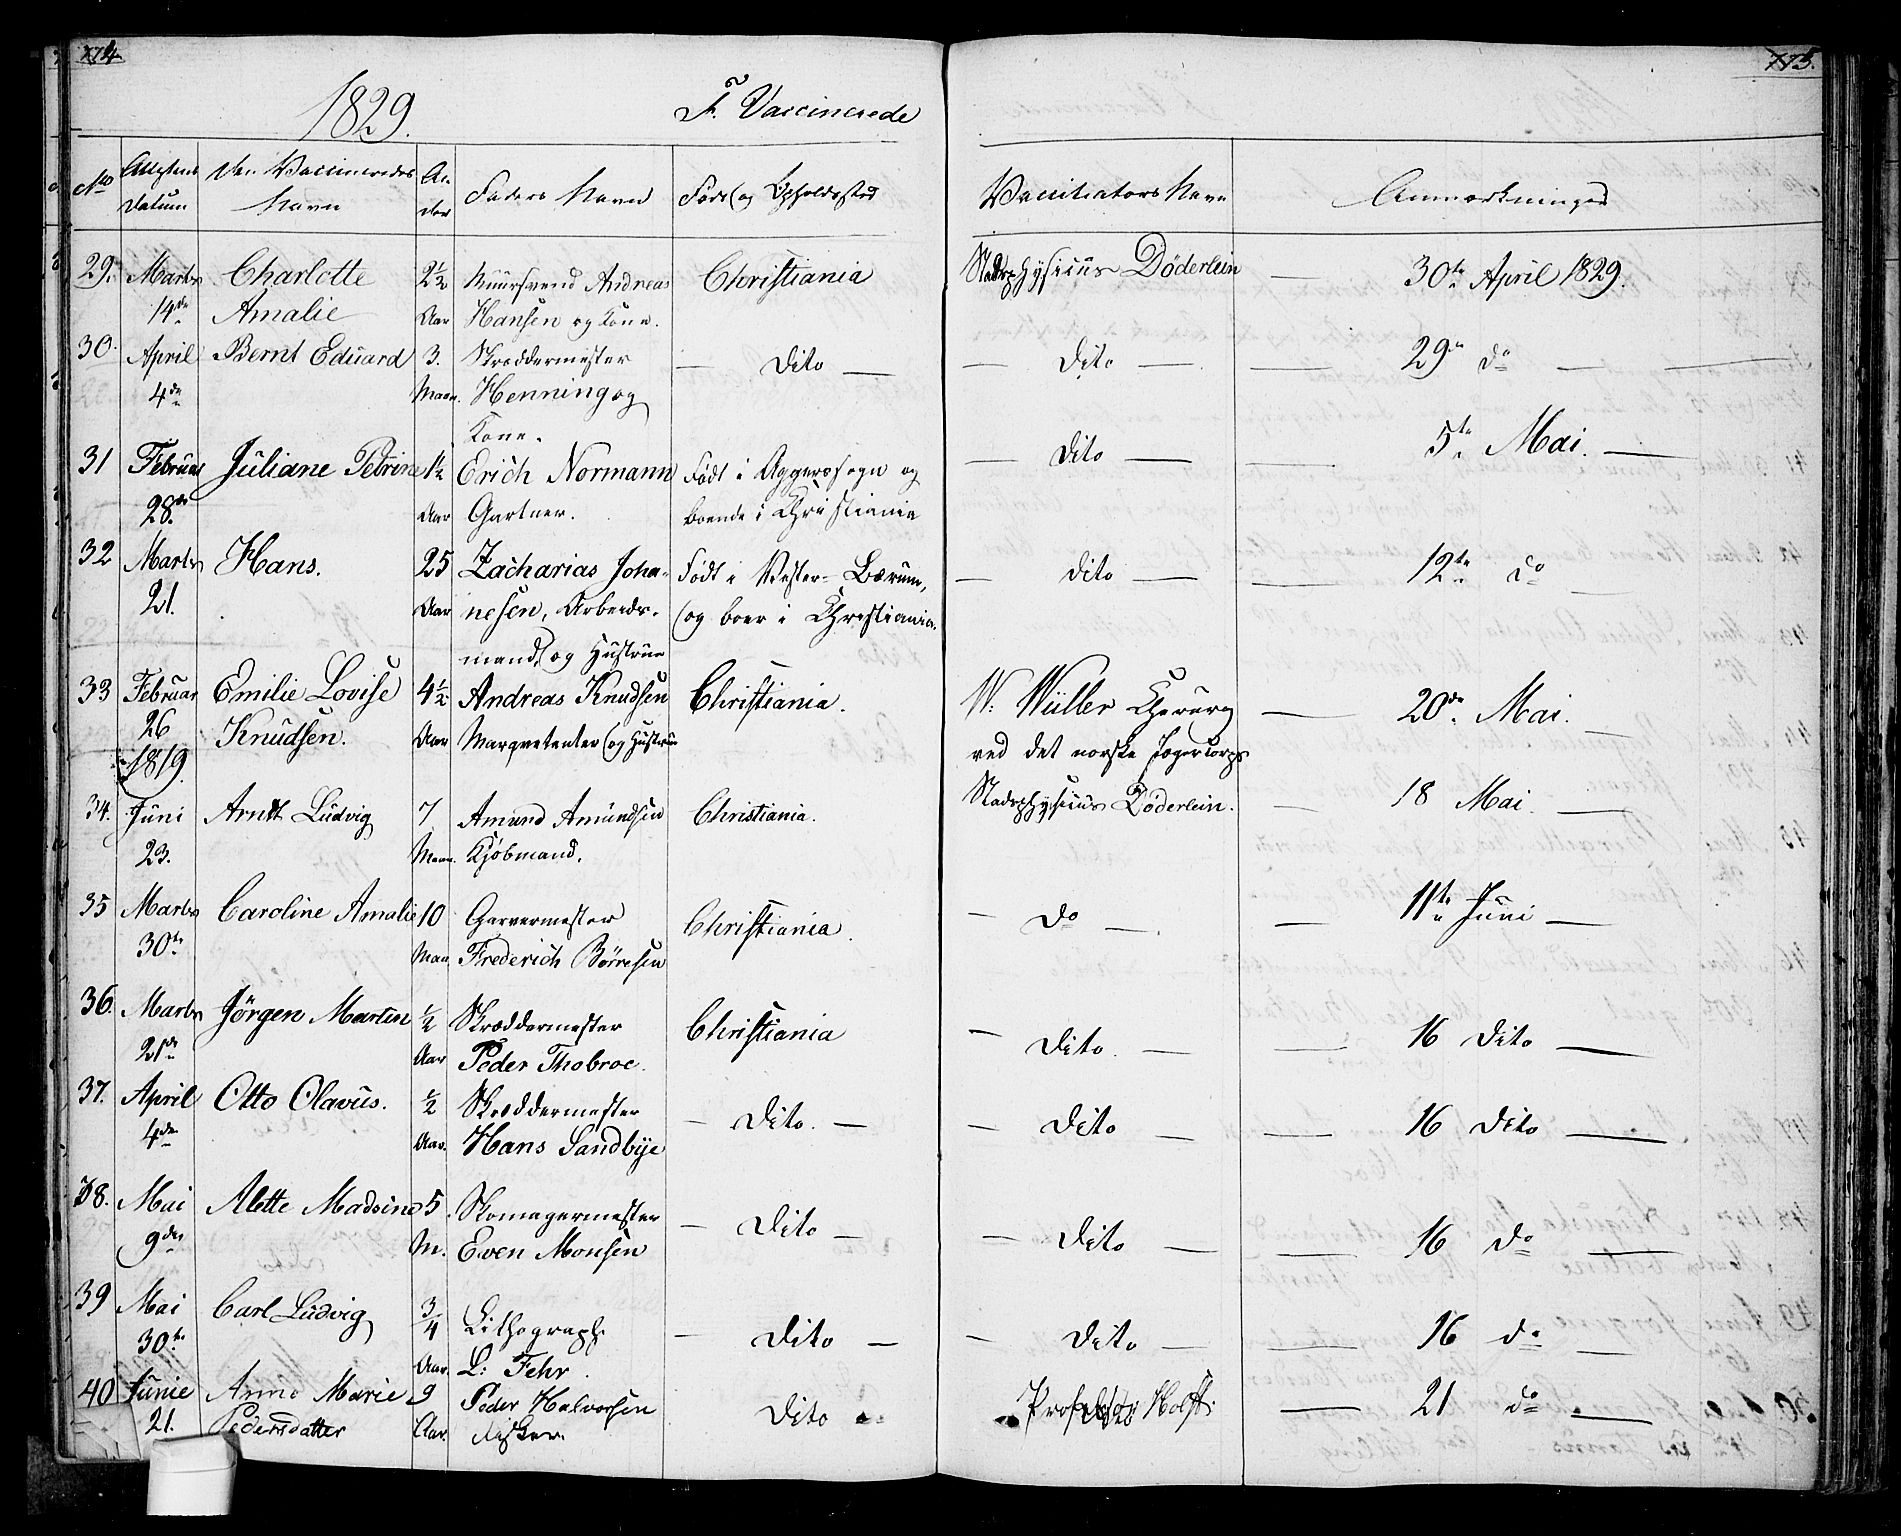 1829. F. Vaccinerede
No Attestens Datum Den Vaccineredes Navn Alder Faders Navn Føde og Opholdssted Vaccinators Navn Anmærkninger
29. Marts Charlotte 2½ Muursvend Andreas Christiania Stadsphysicus Döderlein — 30te April 1829.
14de Amalie Aar Hansen og Kone.
30. April Bernt Eduard 3. Skræddermester — Dito — — Dito — — 29de do —
4de Maan. Henning og
Kone.
31 Februar Juliane Petrine 1½ Erich Normann Født i Aggerssogn og — Dito — — 5te Mai. —
28de Aar Gartner. boende i Christiania
32 Marts Hans. 25 Zacharias Joha- Født i Vester-Bærum, — Dito — — 12te do —
21. Aar nesen, Arbeids- og boer i Christiania.
mand, og Hustrue
33 Februar Emilie Lovise 4½ Andreas Knudsen Christiania. W. Müller Chirurg — 20de Mai. —
26 Knudsen. Aar Marqvetenter og Hustrue ved det norske Jægercorps
1819.
34. Juni Arndt Ludvig 7 Amund Amundsen Christiania. Stadsphysicus Döderlein. — 18 Mai. —
23. Maan. Kjøbmand.
35 Marts Caroline Amalie 10 Garvermester Christiania. — do — — 11te Juni —
30te Maan. Frederich Börresen
36. Marts Jörgen Martin ½ Skræddermester Christiania — Dito. — — 16 Dito —
21de Aar Peder Thobroe.
37. April Otto Olavus. ½ Skræddermester — Dito. — — Dito — — 16 Dito —
4de Aar. Hans Sandbye
38. Mai Alette Madsine 5 Skomagermester — Dito — — Dito — — 16 do —
9de M. Even Monsen
39 Mai Carl Ludvig 3/4 Lithograph — Dito — — Dito — — 16 do —
30te Aar L: Fehr.
40 Junie Anne Marie 9 Peder Halvorsen Dito Professor Holst. — 21 do —
21. Pedersdatter Aar. Fisker.